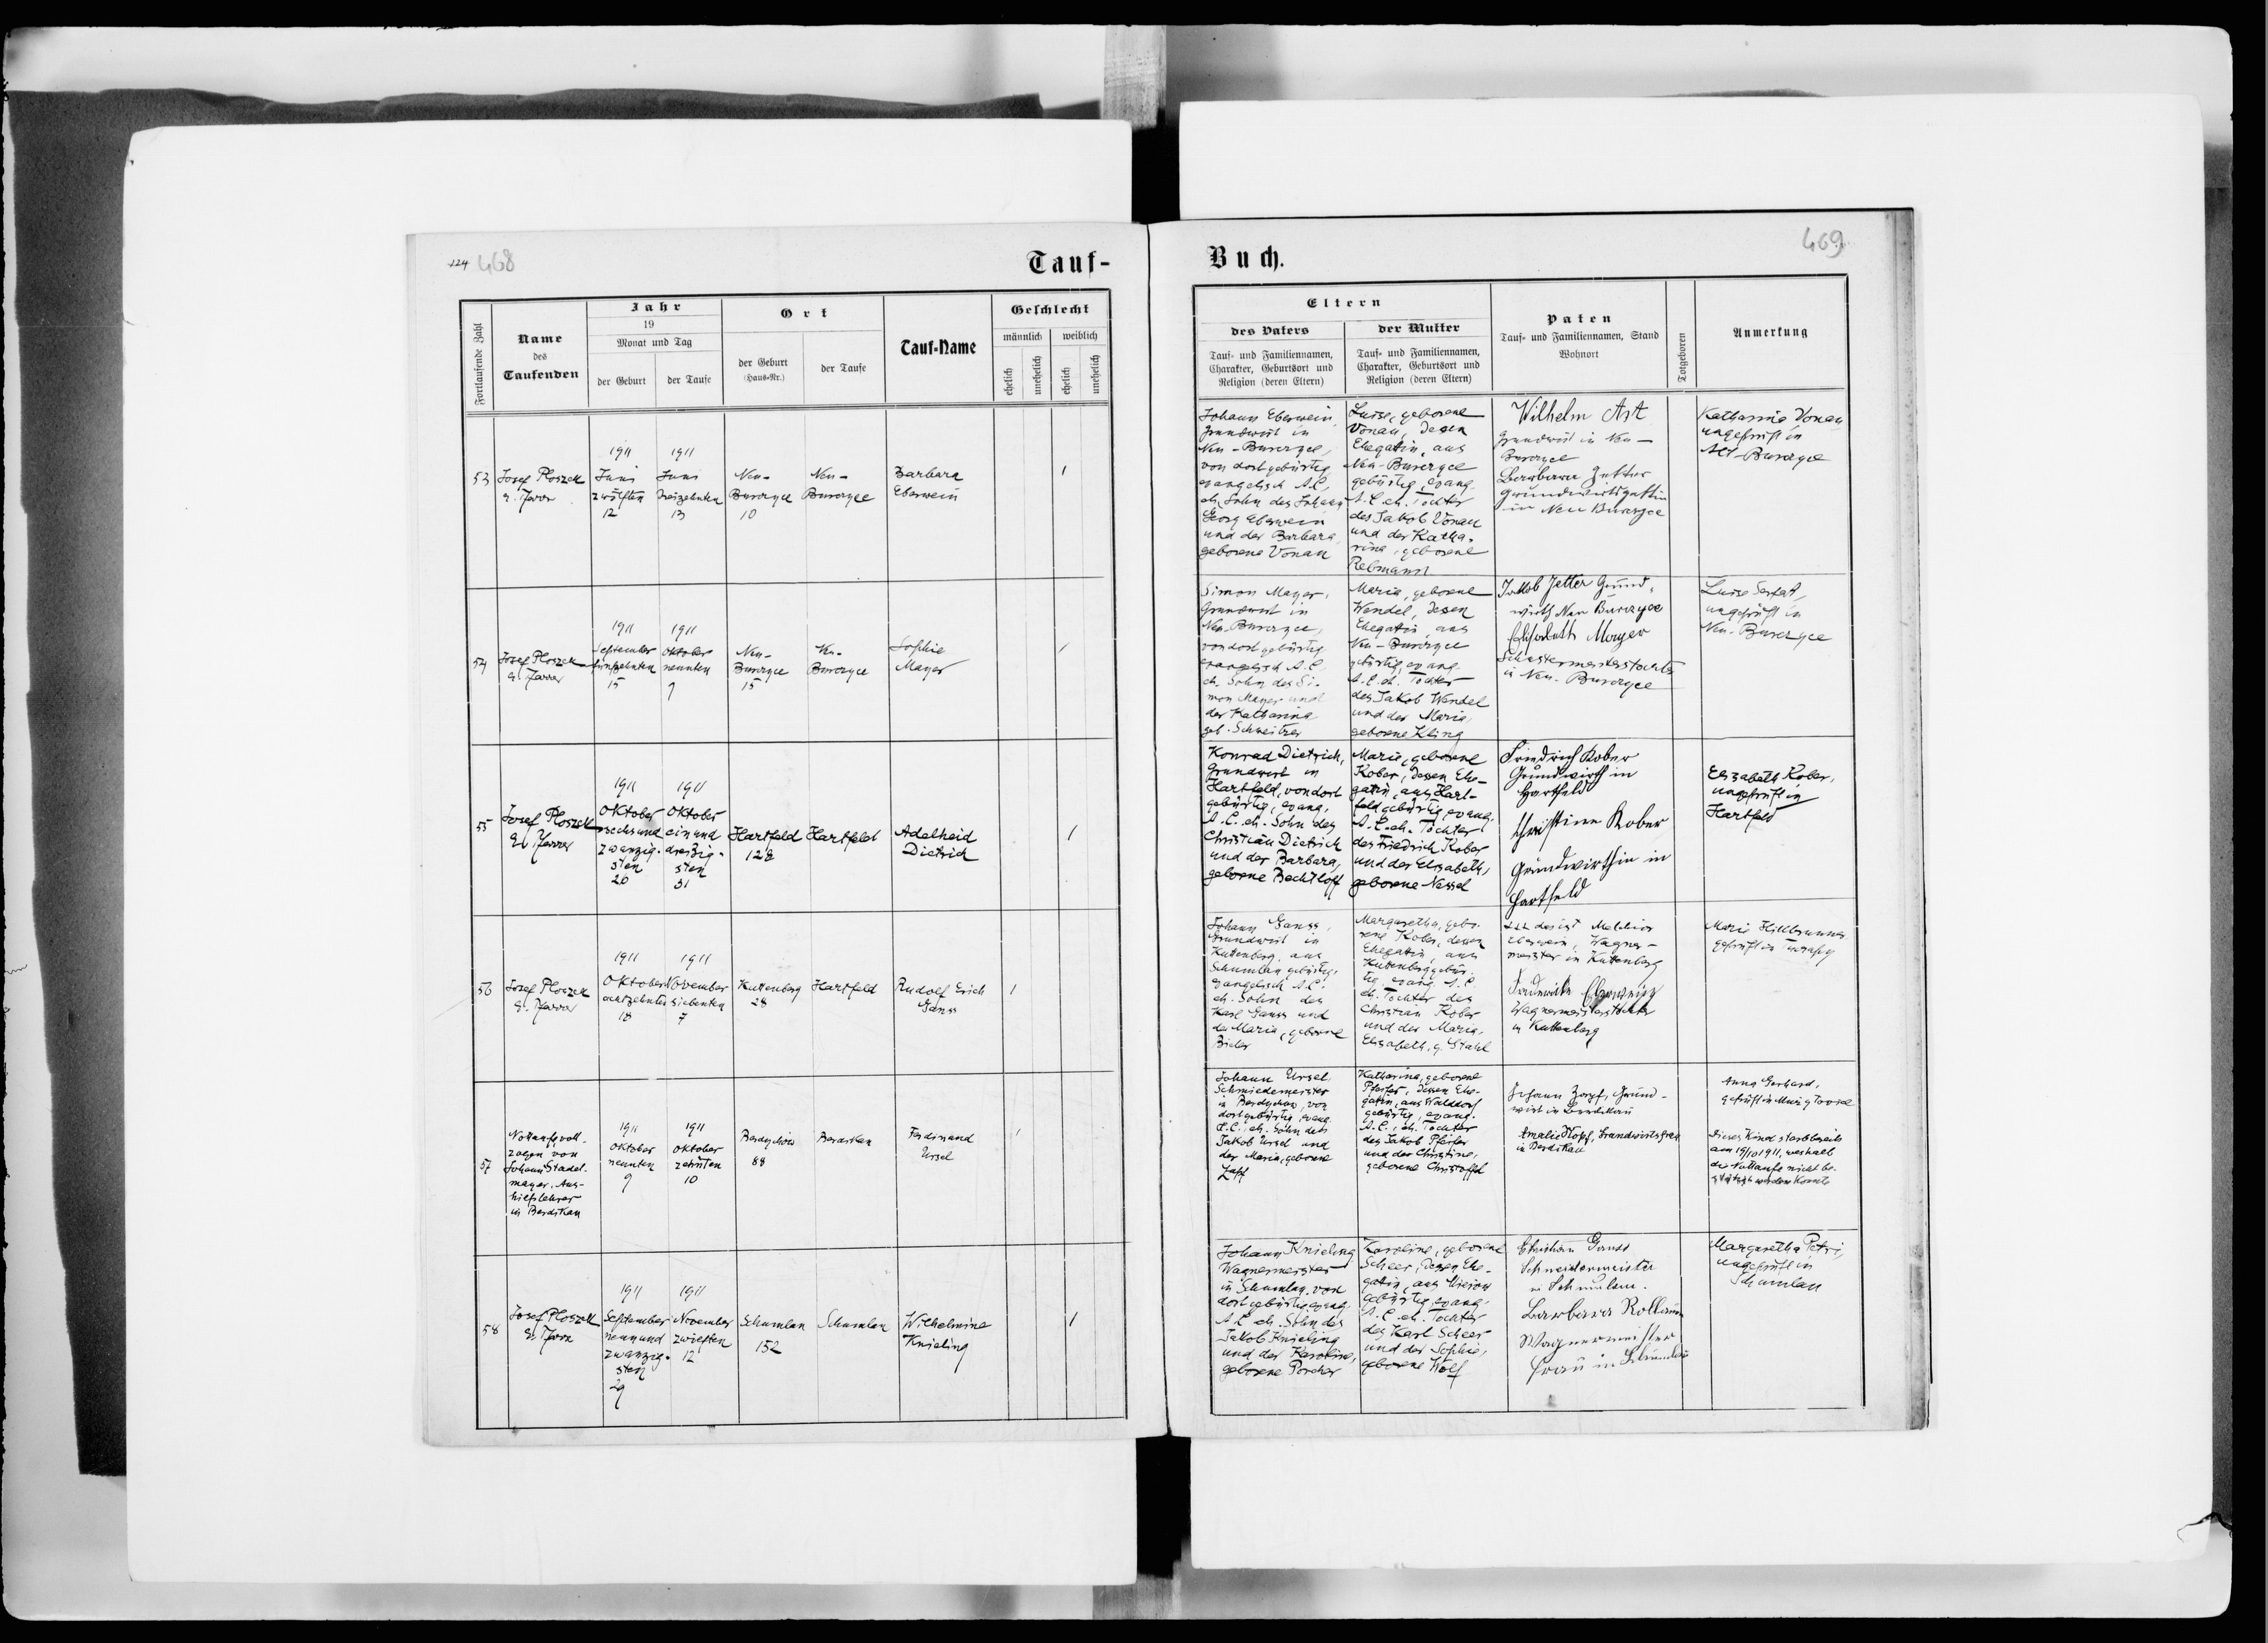 124 468
Tauf-
Fortlaufende Zahl
Name
des
Taufenden
Jahr
19
Monat und Tag
der Geburt
der Taufe
Ort
der Geburt
(Haus-Nr.)
der Taufe
Tauf-Name
Geschlecht
männlich
weiblich
ehelich
unehelich
ehelich
unehelich
53
Josef Ploszek
1911
Juni
zwölften
12
1911
Juni
dreizehnten
13
Neu-
Burczyce
10
Neu-
Burczyce
Barbara
Eberwein
1
54
Josef Ploszek
1911
September
fünfzehnten
15
1911
Oktober
neunten
9
Neu-
Burczyce
15
Neu-
Burczyce
Sophie
Mayer
1
55
Josef Ploszek
1911
Oktober
sechsund
zwanzig-
sten
26
1911
Oktober
einund
dreißig-
sten
31
Hartfeld
128
Hartfeld
Adelheid
Dietrich
1
56
Josef Ploszek
1911
Oktober
achtzehnten
18
1911
November
siebenten
7
Kuttenberg
28
Hartfeld
Rudolf Erich
Ganss
1
57
Nottaufe voll-
zogen von
Johann Stadel-
mayer, Aus-
hilfslehrer
in Berdikau
1911
Oktober
neunten
9
1911
Oktober
zehnten
10
Berdychów
88
Berdikau
Ferdinand
Ursel
1
58
Josef Ploszek
1911
September
neunund
zwanzig-
sten
29
1911
November
zwölften
12
Schumlau
152
Schumlau
Wilhelmine
Knieling
1
469
Buch.
Eltern
des Vaters
Tauf- und Familiennamen,
Charakter, Geburtsort und
Religion (deren Eltern)
der Mutter
Tauf- und Familiennamen,
Charakter, Geburtsort und
Religion (deren Eltern)
Paten
Tauf- und Familiennamen, Stand
Wohnort
Totgeboren
Anmerkung
Johann Eberwein,
Grundwirt in
Neu-Burczyce,
von dort gebürtig,
evangelisch A.C.,
eh. Sohn des Johann
Georg Eberwein
und der Barbara,
geborene Vonau
Luise, geborene
Vonau, dessen
Ehegatin, aus
Neu-Burczyce
gebürtig, evang.
A.C. eh. Tochter
des Jakob Vonau
und der Katha-
rina, geborene
Rebmann
Wilhelm Ast
Grundwirt in Neu-
Burczyce
Barbara Jetter
Grundwirtsgattin
in Neu Burczyce
Katharina Vonau
ungeprüft in
Alt-Burczyce
Simon Mayer,
Grundwirt in
Neu-Burczyce,
von dort gebürtig
evangelisch A.C.
eh. Sohn des Si-
mon Mayer und
der Katharina
geb. Schweitzer
Maria, geborene
Wendel, dessen
Ehegatin, aus
Neu-Burczyce
gebürtig, evang.
A.C. eh. Tochter
des Jakob Wendel
und der Maria,
geborene Kling
Jakob Jetter Grund-
wirth Neu Burczyce
Elisabeth Mayer
Schustermeisterstochter
in Neu-Burczyce
Luise
ungeprüft in
Neu-Burczyce
Konrad Dietrich,
Grundwirt in
Hartfeld, von dort
gebürtig, evang.
A.C. eh. Sohn des
Christian Dietrich
und der Barbara,
geborene Bechtloff
Marie, geborene
Kober, dessen Ehe-
gatin, aus Hart-
feld gebürtig, evang.
A.C. eh. Tochter
des Friedrich Kober
und der Elisabeth,
geborene Nessel
Friedrich Kober
Grundwirth in
Hartfeld
Christine Kober
Grundwirthin in
Hartfeld
Elisabeth Kober,
ungeprüft in
Hartfeld
Johann Ganss,
Grundwirt in
Kuttenberg, aus
Schumlau gebürtig,
evangelisch A.C.
eh. Sohn des
Karl Ganss und
der Maria, geborene
Margaretha, gebo-
rene Kober, dessen
Ehegatin, aus
Kuttenberg gebür-
tig, evang. A.C.
eh. Tochter des
Christian Kober
und der Maria-
Elisabeth, g. Stahl
+++ das ist Melchior
Eberwein, Wagner-
meister in Kuttenberg
Eberwein
Wagnermeisterstochter
in Kuttenberg
Marie Hillbrunner
geprüft in
Johann Ursel,
Schmiedemeister
in Berdychów, von
dort gebürtig, evang.
A.C. eh. Sohn des
Jakob Ursel und
der Maria, geborene
Zapf
Katharina, geborene
Pfeifer, dessen Ehe-
gatin, aus Walddorf
gebürtig, evang.
A.C., eh. Tochter
des Jakob Pfeifer
und der Christine,
geborene Christoffel
Johann Zapf, Grund-
wirt in Berdikau
Amalie Kopf, Grundwirtsfrau
in Berdikau
Anna Gerhard,
geprüft in
Dieses Kind starb bereits
am 19/10 1911, weshalb
die Nottaufe nicht be-
stätigt werden konnte
Johann Knieling
Wagnermeister
in Schumlau, von
dort gebürtig, evang.
A.C. eh. Sohn des
Jakob Knieling
und der Karoline,
geborene Porcher
Karoline, geborene
Scheer, dessen Ehe-
gatin, aus
gebürtig, evang.
A.C. eh. Tochter
des Karl Scheer
und der Sophie,
geborene Wolf
Christian Ganss
Schneidermeister
in Schumlau.
Barbara Rollauer
Wagnermeister
frau in Schumlau
Margaretha Petri,
ungeprüft in
Schumlau